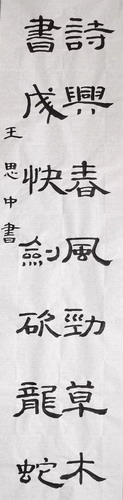 詩興春風勁草木
書成快劍砍龍蛇
王思中書